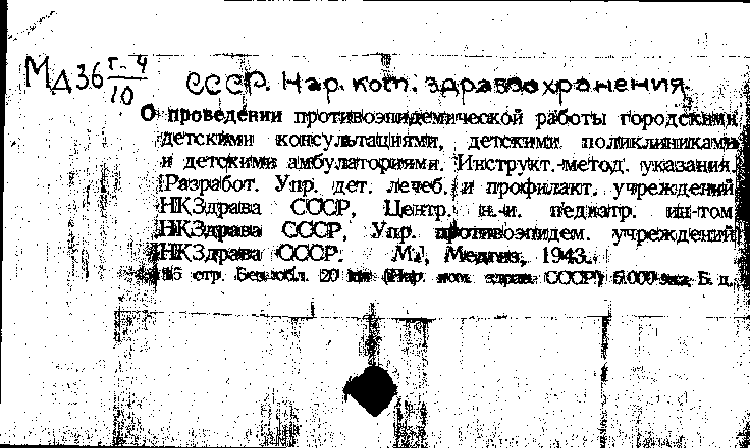 МД36 г-4/10
СССР. Нар. ком. здравоохранения.
О проведении противоэпидемической работы городскими
детскими консультациями, детскими поликлиниками
и детскими амбулаториями. Инструкт.-метод. указания.
Разработ. Упр. дет. лечеб. и профилакт. учреждений
НКЗдрава СССР, Центр. н.-и. педиатр. ин-том
НКЗдрава СССР, Упр. противоэпидем. учреждений
НКЗдрава СССР. М., Медгиз, 1943.
16 стр. Без обл. 20 см (Нар. ком. здрав. СССР) 5.000 экз. Б. ц.